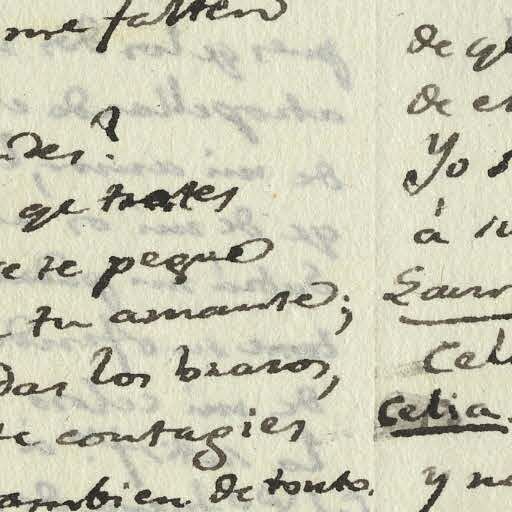 me falten
des?
qe trates
te pegue
tu amante;
das los brazos,
te contagies
tambien de tonto.
de qe
de es
Yo s
á su
Laur
Cel
Celia.
y no